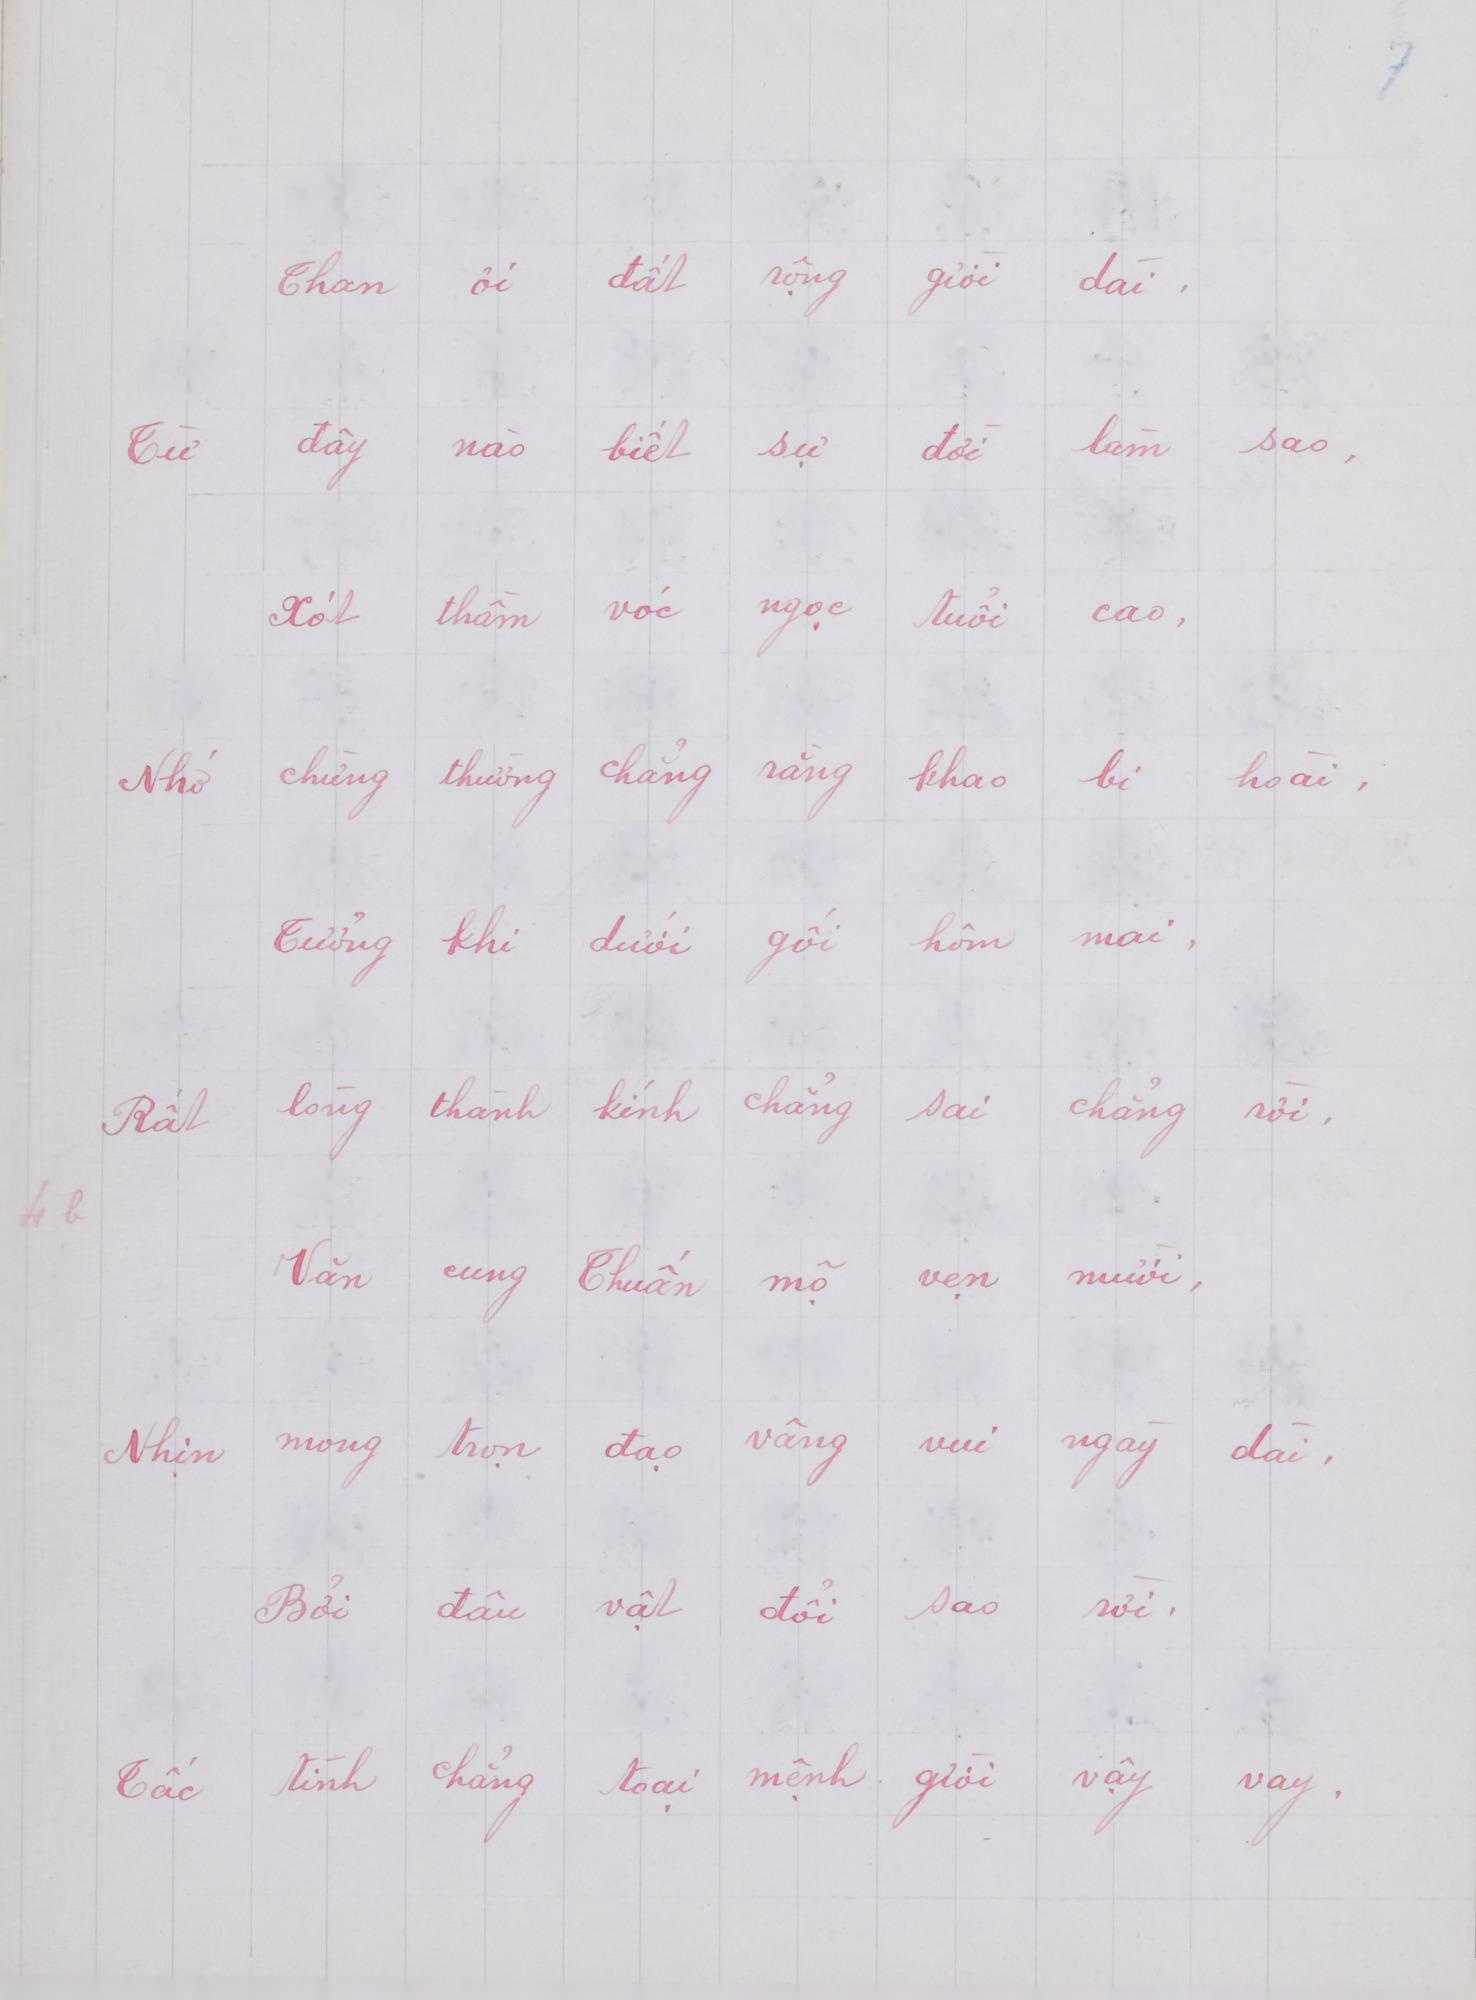 7
Than ôi đất rộng giời dài,
Từ đây nào biết sự đời làm sao,
Xót thầm vóc ngọc tuổi cao,
Nhớ chừng thường chẳng rằng khao bi hoài,
Tưởng khi dưới gối hôm mai,
Rất lòng thành kính chẳng sai chẳng rời,
4b
Văn cung Thuấn mộ vẹn mười,
Nhịn mong trọn đạo vâng vui ngày dài,
Bởi đâu vật đổi sao rời,
Tấc tình chẳng toại mệnh giời vậy vay,